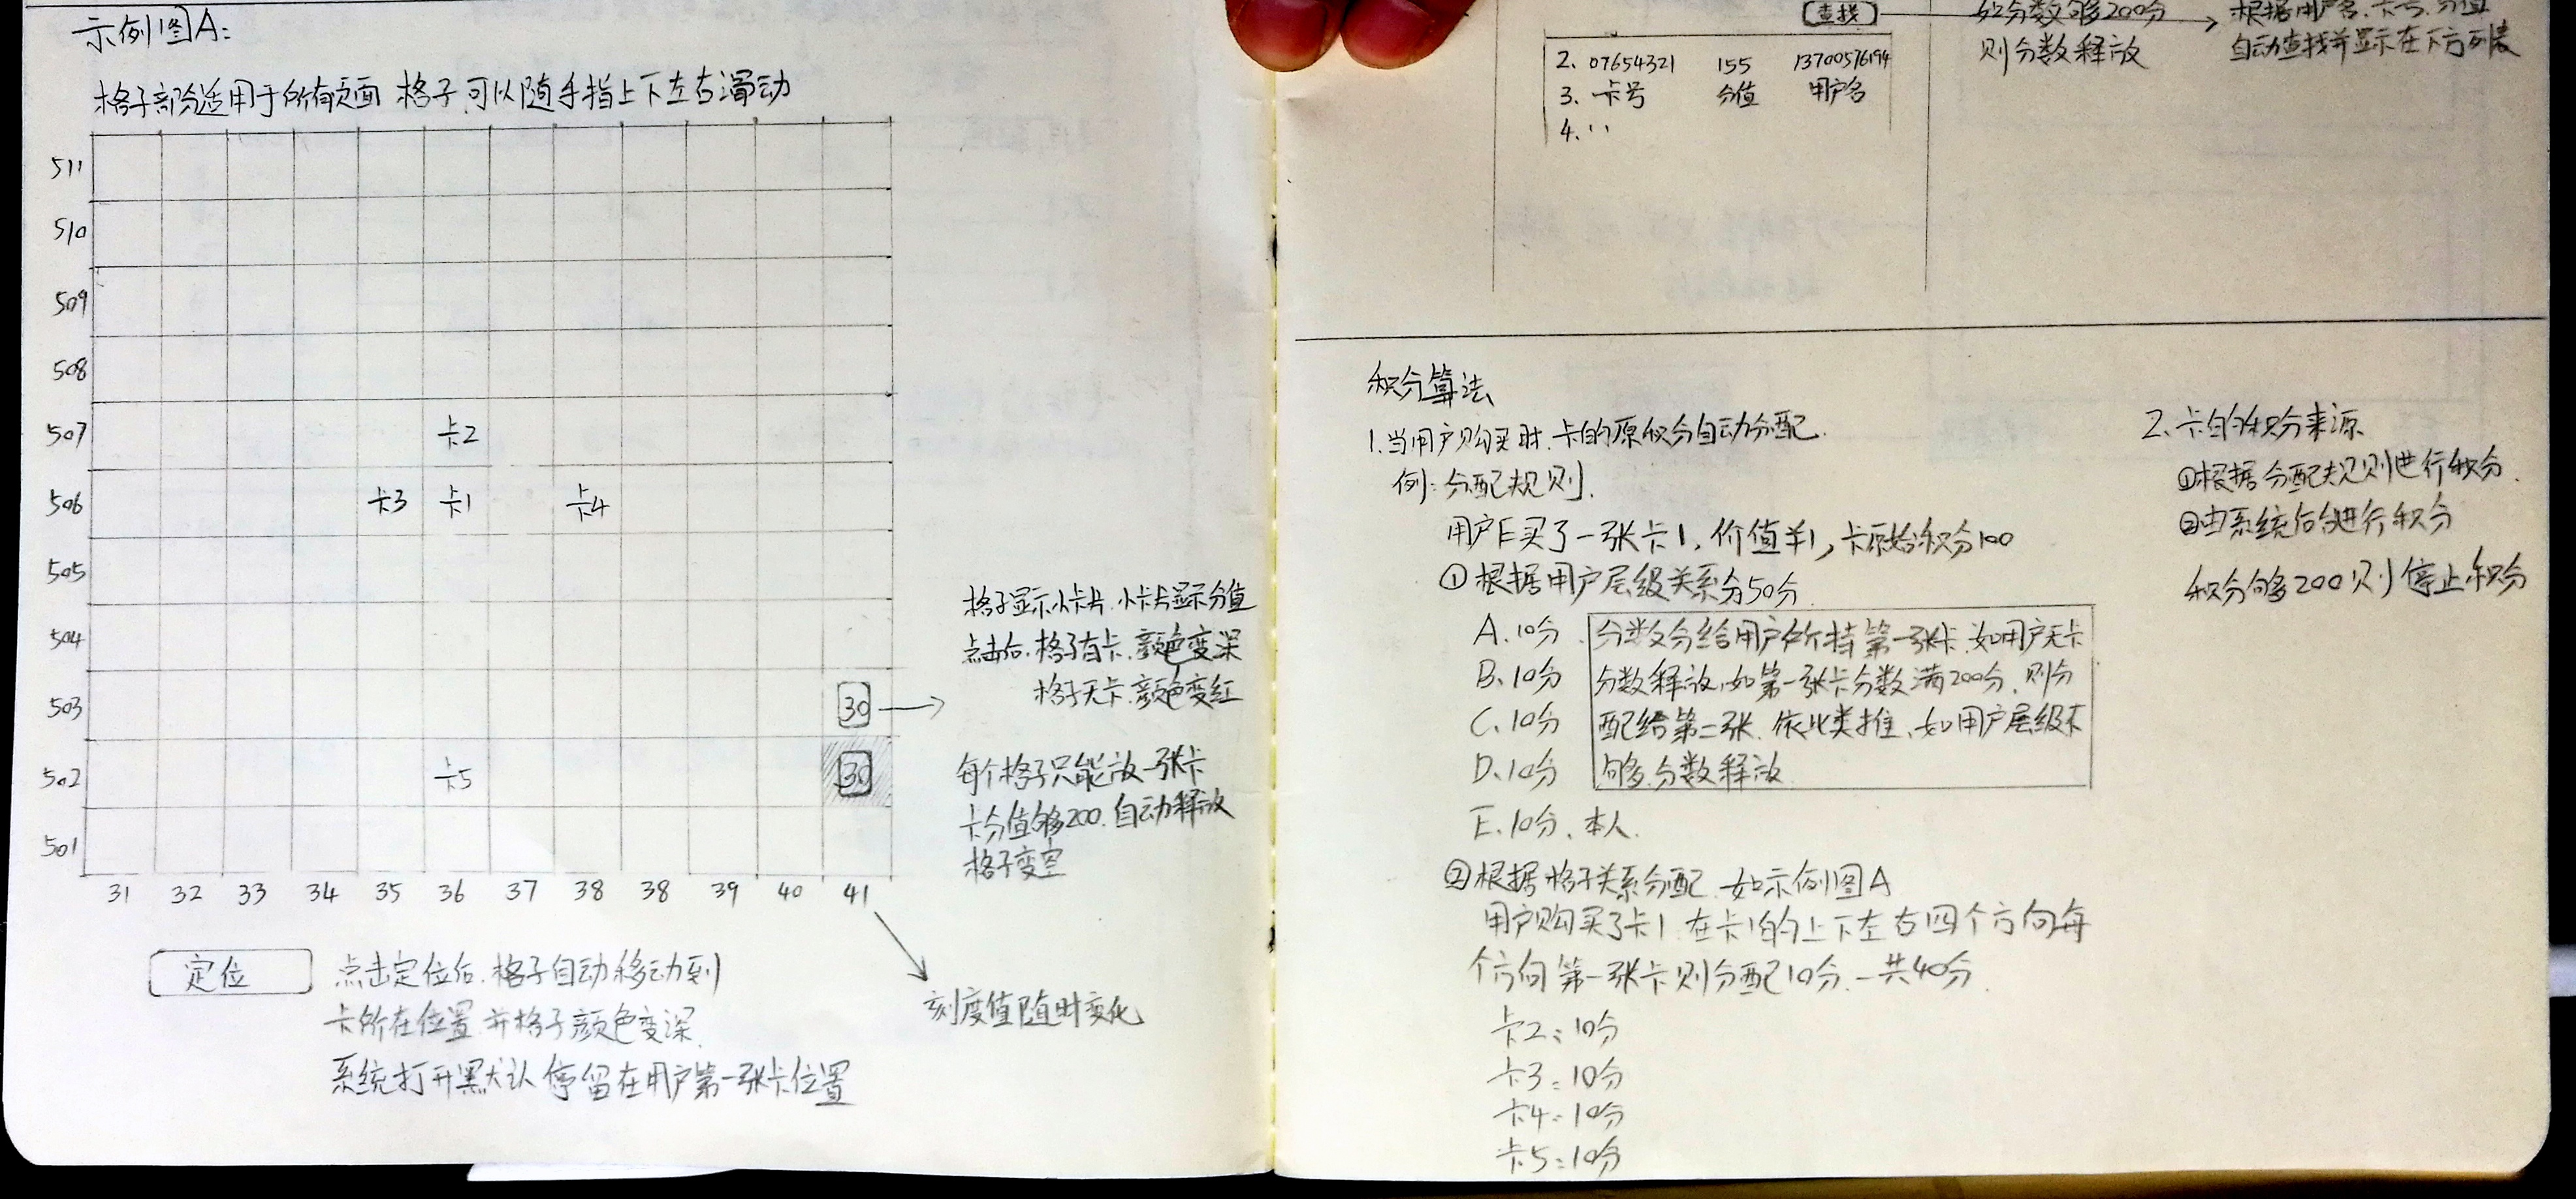 示例图A:
格子部分适用于所有页面 格子可以随手指上下左右滑动
511
510
509
508
507 卡2
506 卡3 卡1 卡4
505
504
503 30
502 卡5 30
501
31 32 33 34 35 36 37 38 38 39 40 41
格子显示小卡片.小卡片显示分值
点击后.格子有卡.颜色变深
格子无卡.颜色变红
每个格子只能放一张卡
卡分值够200.自动释放
格子变空
刻度值随时变化
定位
点击定位后.格子自动移动到
卡所在位置.并格子颜色变深.
系统打开默认停留在用户第一张卡位置
查找
2. 07654321 155 13700576194
3. 卡号 分值 用户名
4. ''
如分数够200分
则分数释放
根据用户名.卡号.分值
自动查找并显示在下方列表
积分算法
1.当用户购买时.卡的原积分自动分配.
例:分配规则.
用户E买了一张卡1,价值¥1,卡原始积分100
①根据用户层级关系分50分
A.10分.
B.10分
C.10分
D.10分
分数分给用户所持第一张卡.如用户无卡
分数释放.如第一张卡分数满200分.则分
配给第二张.依此类推、如用户层级不
够.分数释放
E.10分.本人.
②根据格子关系分配.如示例图A
用户购买了卡1.在卡1的上下左右四个方向每
个方向第一张卡则分配10分.一共40分.
卡2:10分
卡3:10分
卡4:10分
卡5:10分
2.卡的积分来源
①根据分配规则进行积分.
②由系统后台进行积分
积分够200则停止积分